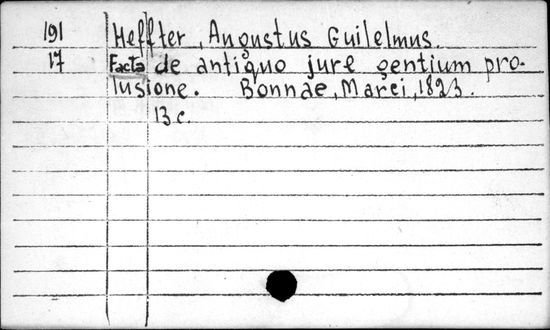 191 Heffter, Augustus Guilelmus.
17 Facta de antiquo jure gentium pro-
lusione. Bonnae, Marci, 1823.
13 c.